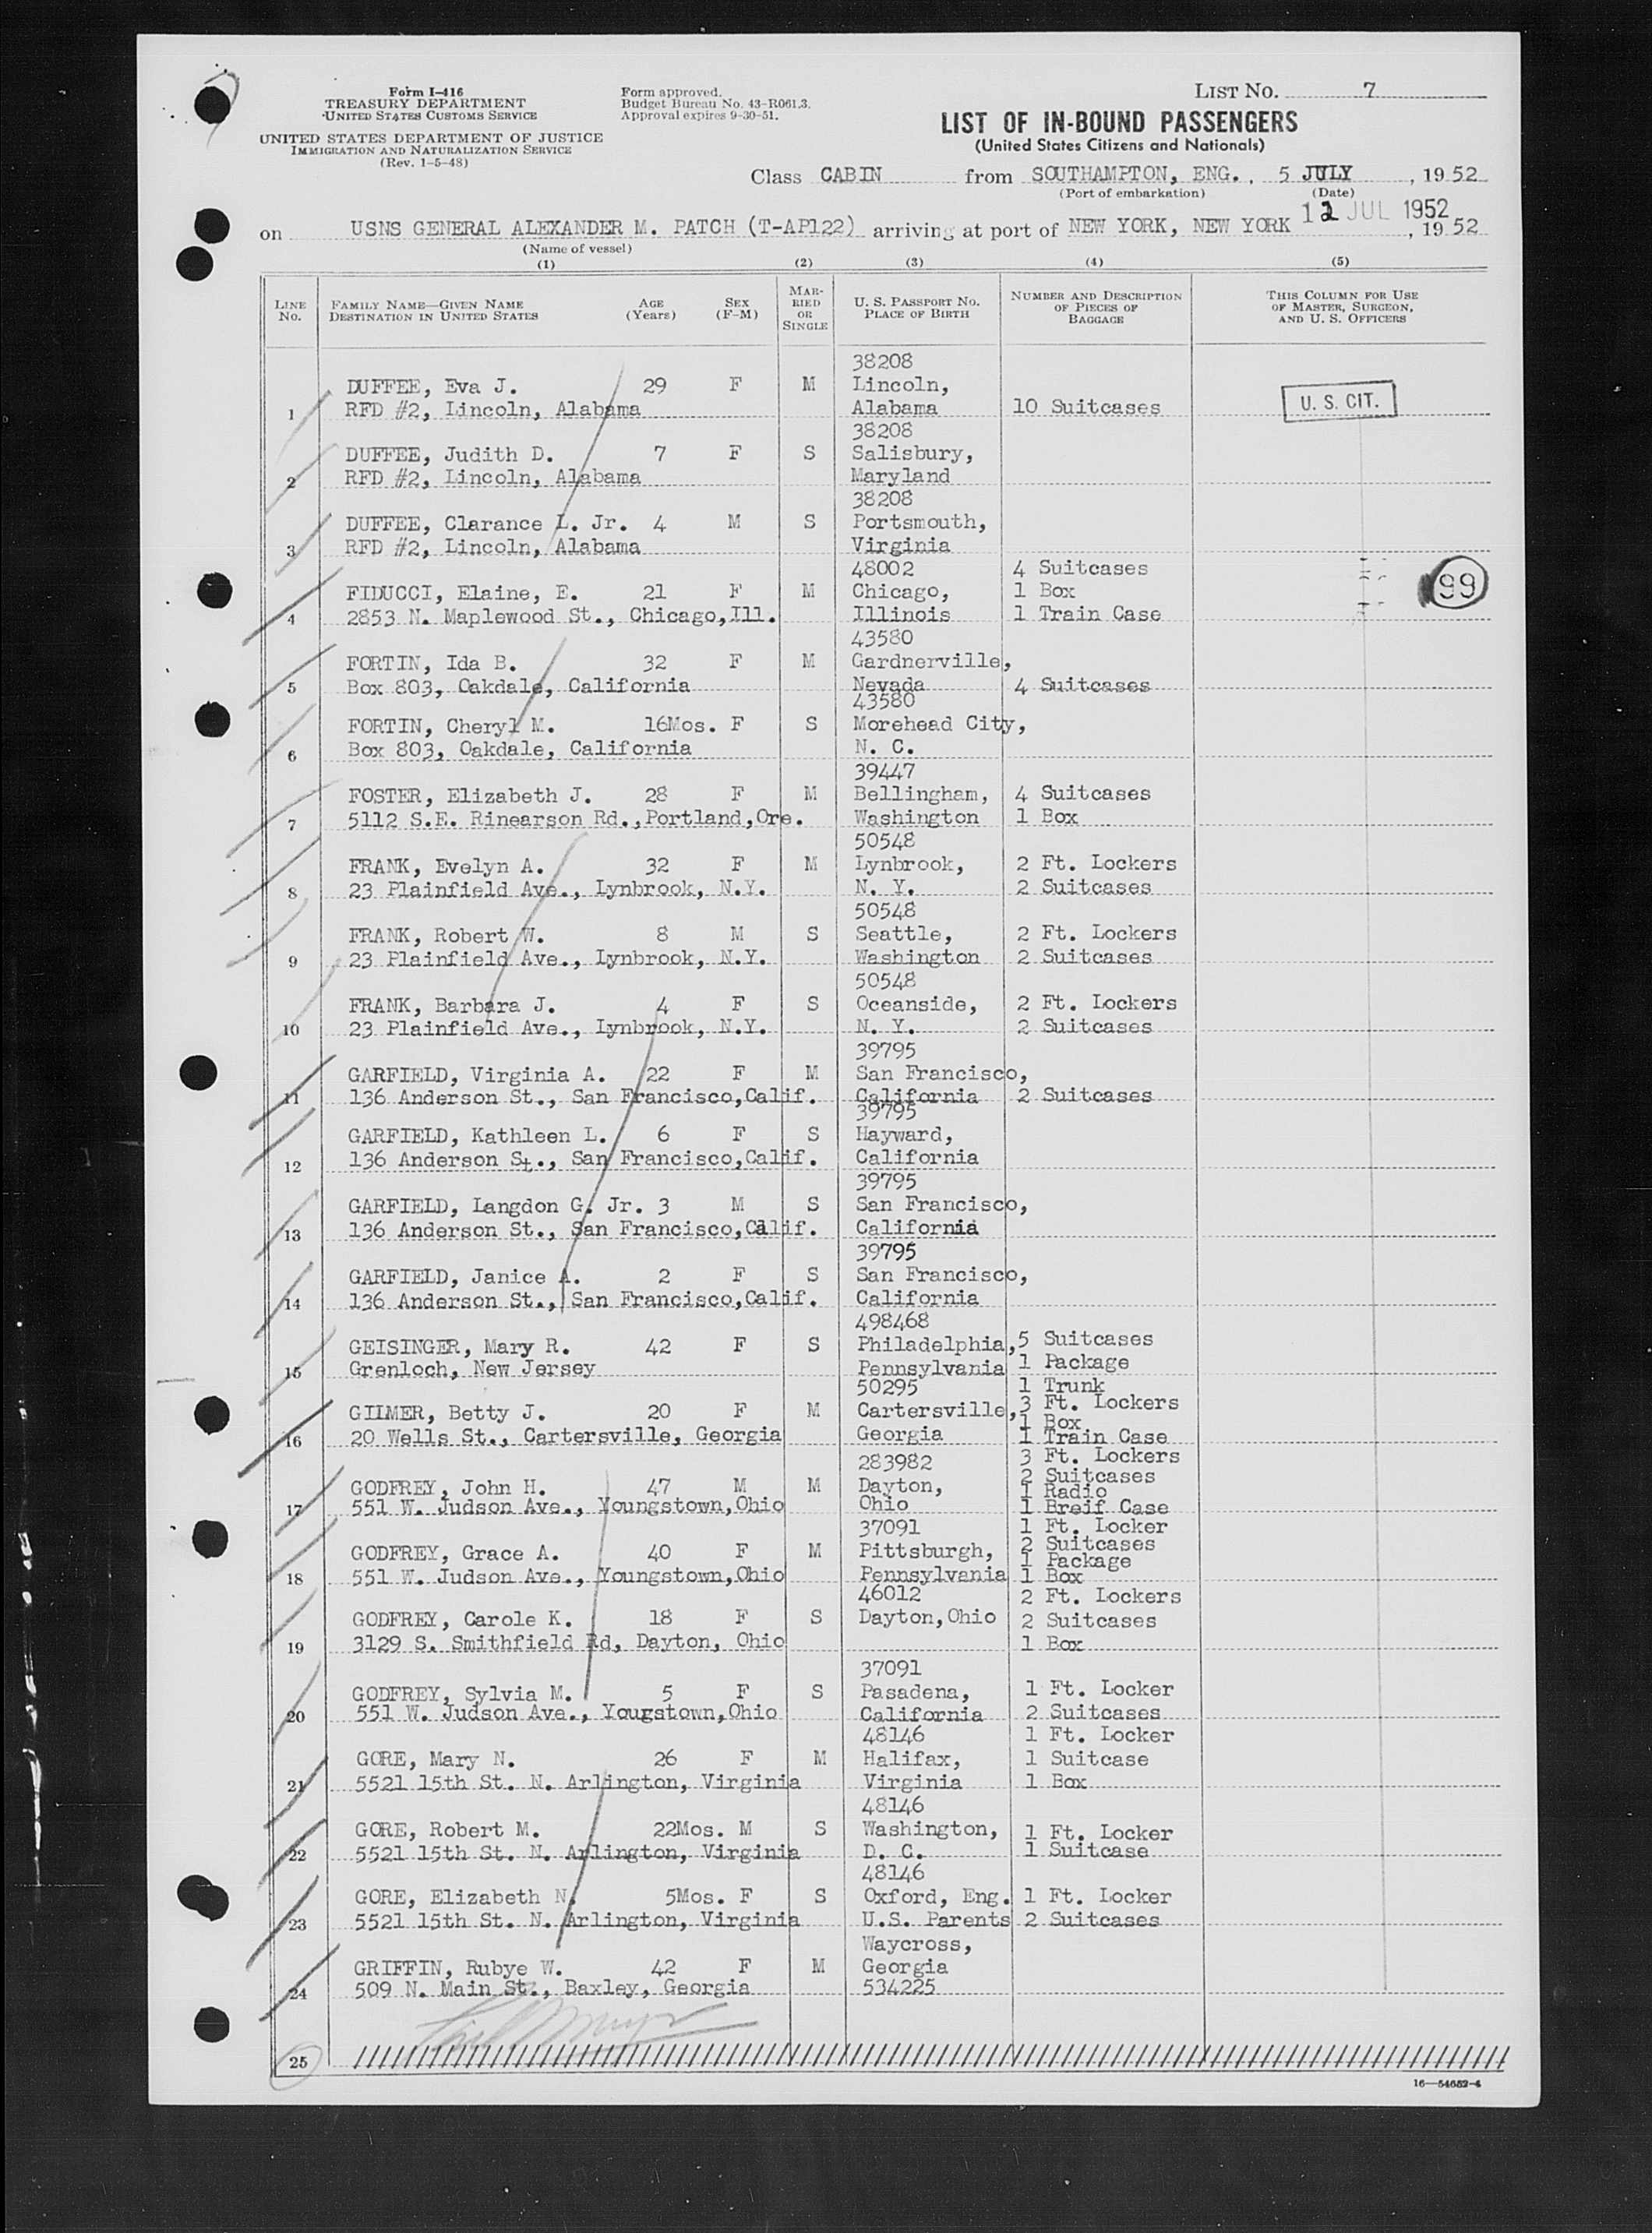 Form I-416
TREASURY DEPARTMENT
UNITED STATES CUSTOMS SERVICE
UNITED STATES DEPARTMENT OF JUSTICE
IMMIGRATION AND NATURALIZATION SERVICE
(Rev. 1-5-48)
Form approved.
Budget Bureau No. 43-R061.3.
Approval expires 9-30-51.
LIST NO. 7
LIST OF IN-BOUND PASSENGERS
(United States Citizens and Nationals)
Class CABIN from SOUTHAMPTON, ENG., 5 JULY, 1952
(Port of embarkation) (Date)
12 JUL 1952
on USNS GENERAL ALEXANDER M. PATCH (T-AP122) arriving at port of NEW YORK, NEW YORK, 1952
(Name of vessel)
(1) (2) (3) (4) (5)
LINE NO. FAMILY NAME—GIVEN NAME DESTINATION IN UNITED STATES AGE (Years) SEX (F-M) MARRIED OR SINGLE U. S. PASSPORT NO. PLACE OF BIRTH NUMBER AND DESCRIPTION OF PIECES OF BAGGAGE THIS COLUMN FOR USE OF MASTER, SURGEON, AND U. S. OFFICERS
38208
DUFFEE, Eva J. 29 F M Lincoln,
1 RFD #2, Lincoln, Alabama Alabama 10 Suitcases U. S. CIT.
38208
DUFFEE, Judith D. 7 F S Salisbury,
2 RFD #2, Lincoln, Alabama Maryland
38208
DUFFEE, Clarance L. Jr. 4 M S Portsmouth,
3 RFD #2, Lincoln, Alabama Virginia
48002 4 Suitcases
FIDUCCI, Elaine, E. 21 F M Chicago, 1 Box 99
4 2853 N. Maplewood St., Chicago,Ill. Illinois 1 Train Case
43580
FORTIN, Ida B. 32 F M Gardnerville,
5 Box 803, Oakdale, California Nevada 4 Suitcases
43580
FORTIN, Cheryl M. 16Mos. F S Morehead City,
6 Box 803, Oakdale, California N. C.
39447
FOSTER, Elizabeth J. 28 F M Bellingham, 4 Suitcases
7 5112 S.E. Rinearson Rd.,Portland,Ore. Washington 1 Box
50548
FRANK, Evelyn A. 32 F M Lynbrook, 2 Ft. Lockers
8 23 Plainfield Ave., Lynbrook, N.Y. N. Y. 2 Suitcases
50548
FRANK, Robert W. 8 M S Seattle, 2 Ft. Lockers
9 23 Plainfield Ave., Lynbrook, N.Y. Washington 2 Suitcases
50548
FRANK, Barbara J. 4 F S Oceanside, 2 Ft. Lockers
10 23 Plainfield Ave., Lynbrook, N.Y. N. Y. 2 Suitcases
39795
GARFIELD, Virginia A. 22 F M San Francisco,
11 136 Anderson St., San Francisco,Calif. California 2 Suitcases
39795
GARFIELD, Kathleen L. 6 F S Hayward,
12 136 Anderson St., San Francisco,Calif. California
39795
GARFIELD, Langdon G. Jr. 3 M S San Francisco,
13 136 Anderson St., San Francisco,Calif. California
39795
GARFIELD, Janice A. 2 F S San Francisco,
14 136 Anderson St., San Francisco,Calif. California
498468
GEISINGER, Mary R. 42 F S Philadelphia, 5 Suitcases
15 Grenloch, New Jersey Pennsylvania 1 Package
50295 1 Trunk
GILMER, Betty J. 20 F M Cartersville, 3 Ft. Lockers
1 Box
16 20 Wells St., Cartersville, Georgia Georgia 1 Train Case
283982 3 Ft. Lockers
2 Suitcases
GODFREY, John H. 47 M M Dayton, 1 Radio
17 551 W. Judson Ave., Youngstown,Ohio Ohio 1 Breif Case
37091 1 Ft. Locker
2 Suitcases
GODFREY, Grace A. 40 F M Pittsburgh, 1 Package
18 551 W. Judson Ave., Youngstown,Ohio Pennsylvania 1 Box
46012 2 Ft. Lockers
GODFREY, Carole K. 18 F S Dayton,Ohio 2 Suitcases
19 3129 S. Smithfield Rd, Dayton, Ohio 1 Box
37091
GODFREY, Sylvia M. 5 F S Pasadena, 1 Ft. Locker
20 551 W. Judson Ave., Yougstown,Ohio California 2 Suitcases
48146 1 Ft. Locker
GORE, Mary N. 26 F M Halifax, 1 Suitcase
21 5521 15th St. N. Arlington, Virginia Virginia 1 Box
48146
GORE, Robert M. 22Mos. M S Washington, 1 Ft. Locker
22 5521 15th St. N. Arlington, Virginia D. C. 1 Suitcase
48146
GORE, Elizabeth N. 5Mos. F S Oxford, Eng. 1 Ft. Locker
23 5521 15th St. N. Arlington, Virginia U.S. Parents 2 Suitcases
Waycross,
GRIFFIN, Rubye W. 42 F M Georgia
24 509 N. Main St., Baxley, Georgia 534225
25
16—54652-4